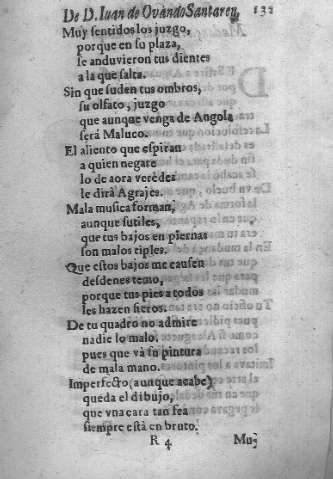 De D. Iuan de Ovando Santaren, 132
Muy sentidos los juzgo,
porque en su plaza,
se anduvieron tus dientes
a la que salta.
Sin que suden tus ombros,
su olfato, juzgo
que aunque venga de Angola
serà Maluco.
El aliento que espiran
a quien negare
lo de aora veredes
le dirà Agrajes.
Mala musica forman,
aunque sutiles,
que tus bajos en piernas
son malos tiples.
Que estos bajos me causen
desdenes temo,
porque tus pies a todos
les hazen fieros.
De tu quadro no admire
nadie lo malo,
pues que và su pintura
de mala mano.
Imperfecto (aunque acabe)
queda el dibujo,
que vna cara tan fea
siempre està en bruto.
R 4 Muj